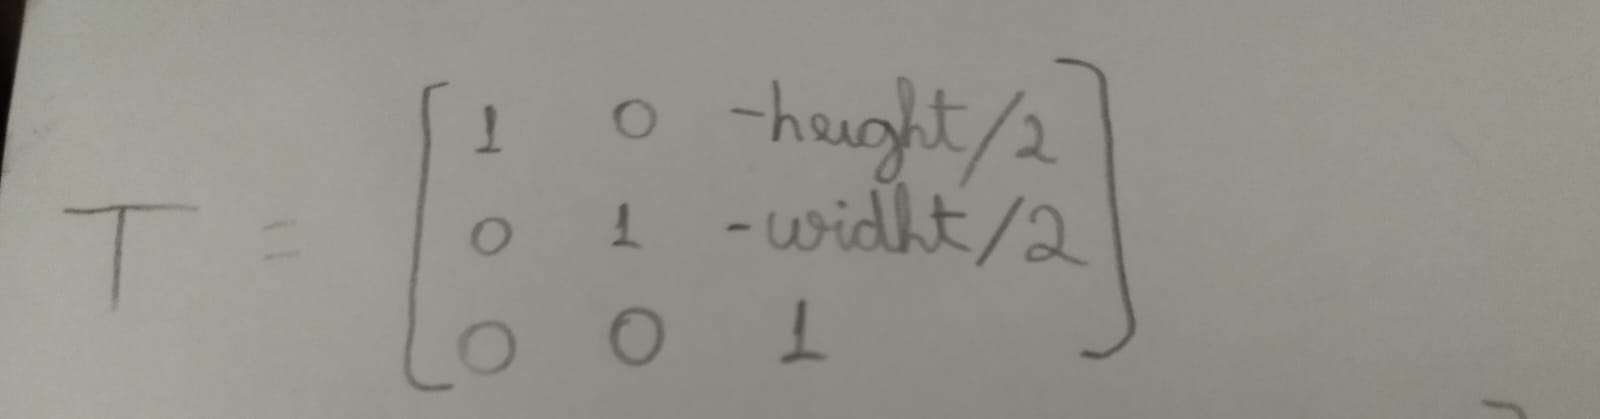 1 0 -height/2
T = 0 1 -widht/2
0 0 1